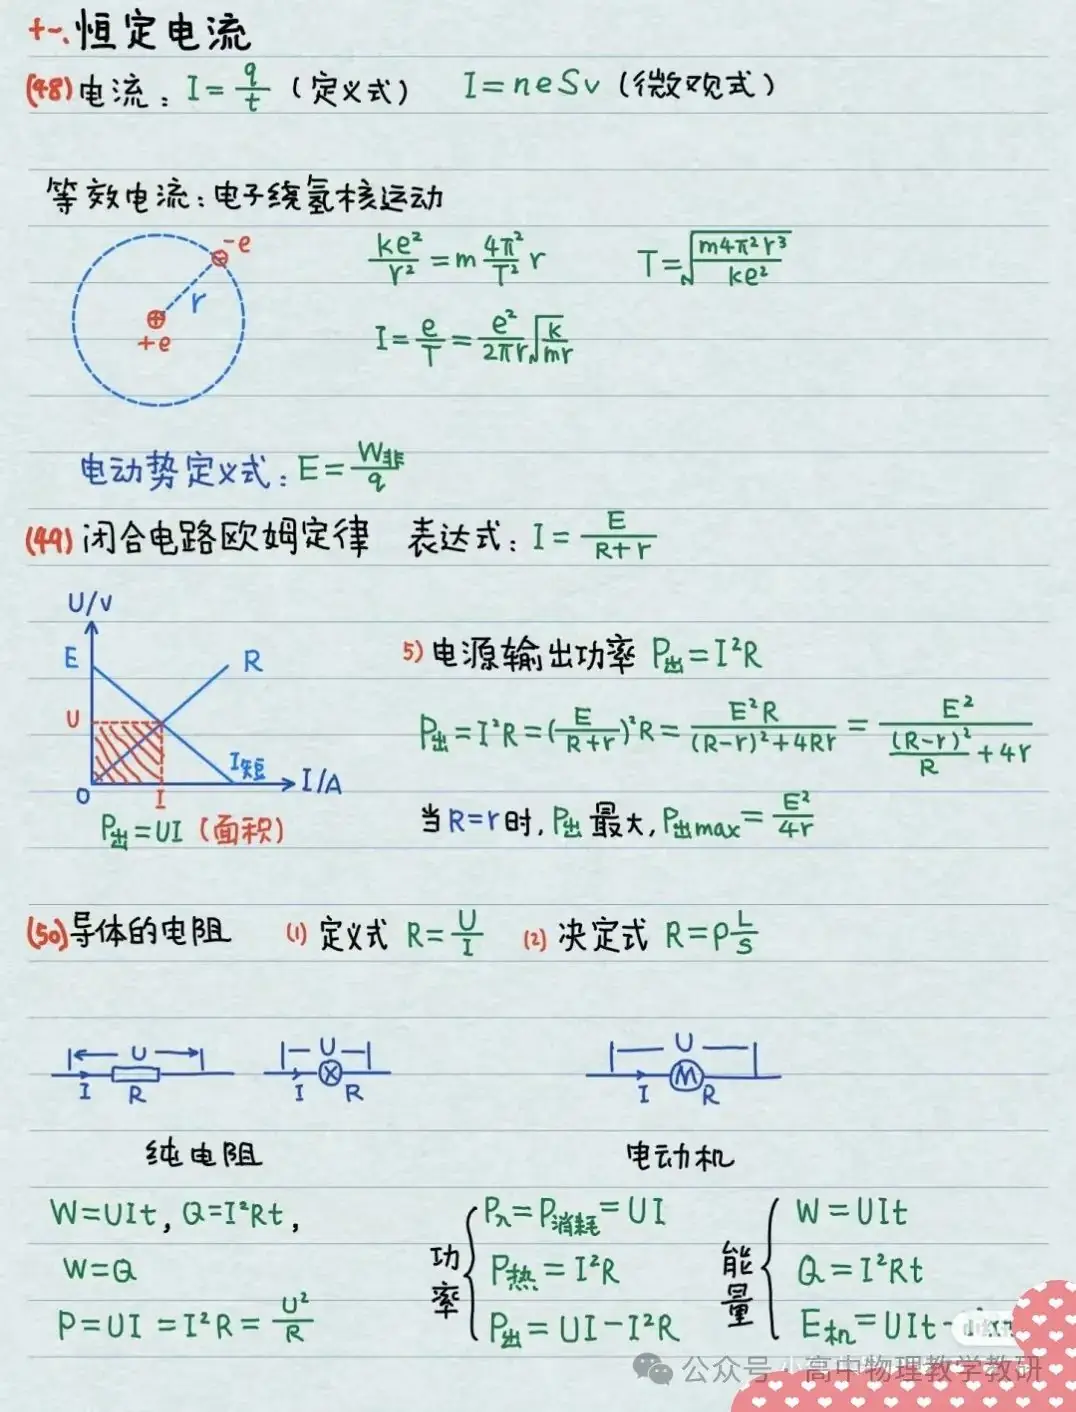 十一.恒定电流
(48)电流：I=q/t（定义式） I=neSv（微观式）
等效电流：电子绕氢核运动
-e
r
+e
ke²/r²=m 4π²/T² r T=√(m4π²r³/ke²)
I=e/T=e²/2πr √(k/mr)
电动势定义式：E=W非/q
(49)闭合电路欧姆定律 表达式：I=E/(R+r)
U/V
E R
U
I短
O I I/A
P出=UI（面积）
5)电源输出功率 P出=I²R
P出=I²R=(E/(R+r))²R=E²R/((R-r)²+4Rr)=E²/((R-r)²/R+4r)
当R=r时，P出最大，P出max=E²/4r
(50)导体的电阻 (1)定义式 R=U/I (2)决定式 R=ρL/S
U U U
I R I R I M R
纯电阻 电动机
W=UIt，Q=I²Rt，
W=Q
P=UI=I²R=U²/R
功率
P入=P消耗=UI
P热=I²R
P出=UI-I²R
能量
W=UIt
Q=I²Rt
E机=UIt-
公众号·小高中物理教学教研